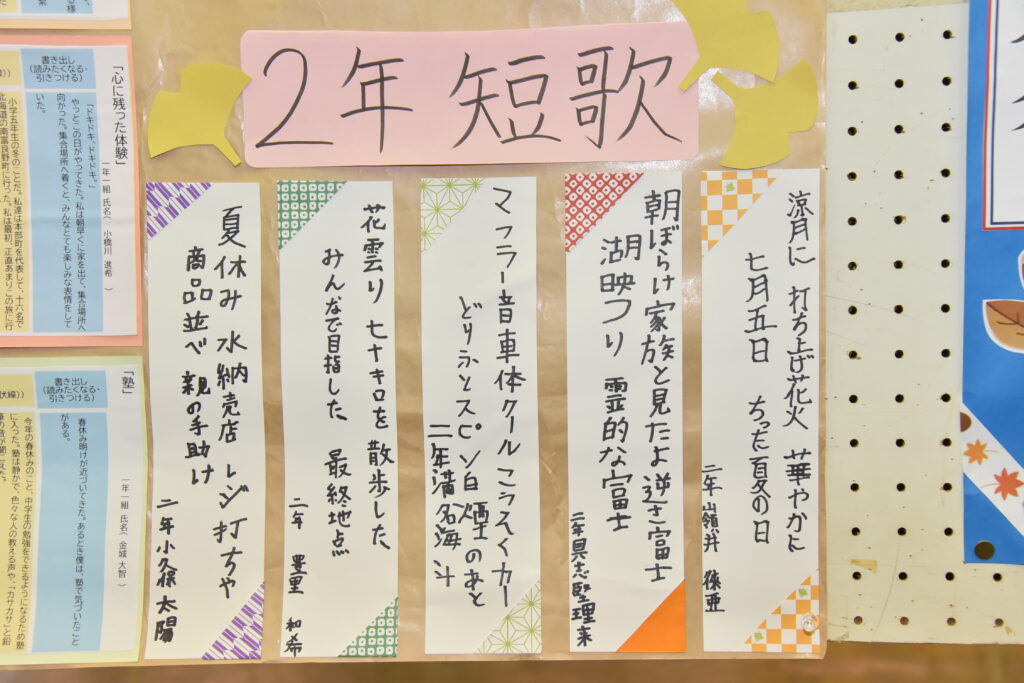 2年 短歌
涼月に 打ち上げ花火 華やかに
七月五日 ちった夏の日
二年 嶺井
朝ぼらけ家族と見たよ逆さ富士
湖映つり 霊的な富士
二年具志堅理来
マフラー音車体クールこうそくカー
どりふとスピン白煙のあと
二年満名海斗
花雲り 七十キロを散歩した
みんなで目指した 最終地点
二年 豊里 和希
夏休み 水納売店 レジ打ちや
商品並べ 親の手助け
二年小久保太陽
「心に残った体験」
一年一組 氏名( 小橋川 進希 )
書き出し
(読みたくなる・
引きつける)
「ドキドキ、ドキドキ。」
やっとこの日がやってきた。私は朝早くに家を出て、集合場所へ
向かった。集合場所へ着くと、みんなとても楽しみな表情をして
いた。
小学五年生の冬のことだ。私達は本部町を代表して、十六名で
北海道の南富良野町に行った。私は最初、正直あまりこの旅に行
「塾」
一年一組 氏名( 金城 大智 )
書き出し
(読みたくなる・
引きつける)
春休み明けが近づいてきた。あるとき僕は、塾で気づいたこと
がある。
今年の春休みのこと、中学生の勉強をできるようになるため塾
に入った。塾は静かで、色々な人の教える声や、「カサカサ」と鉛